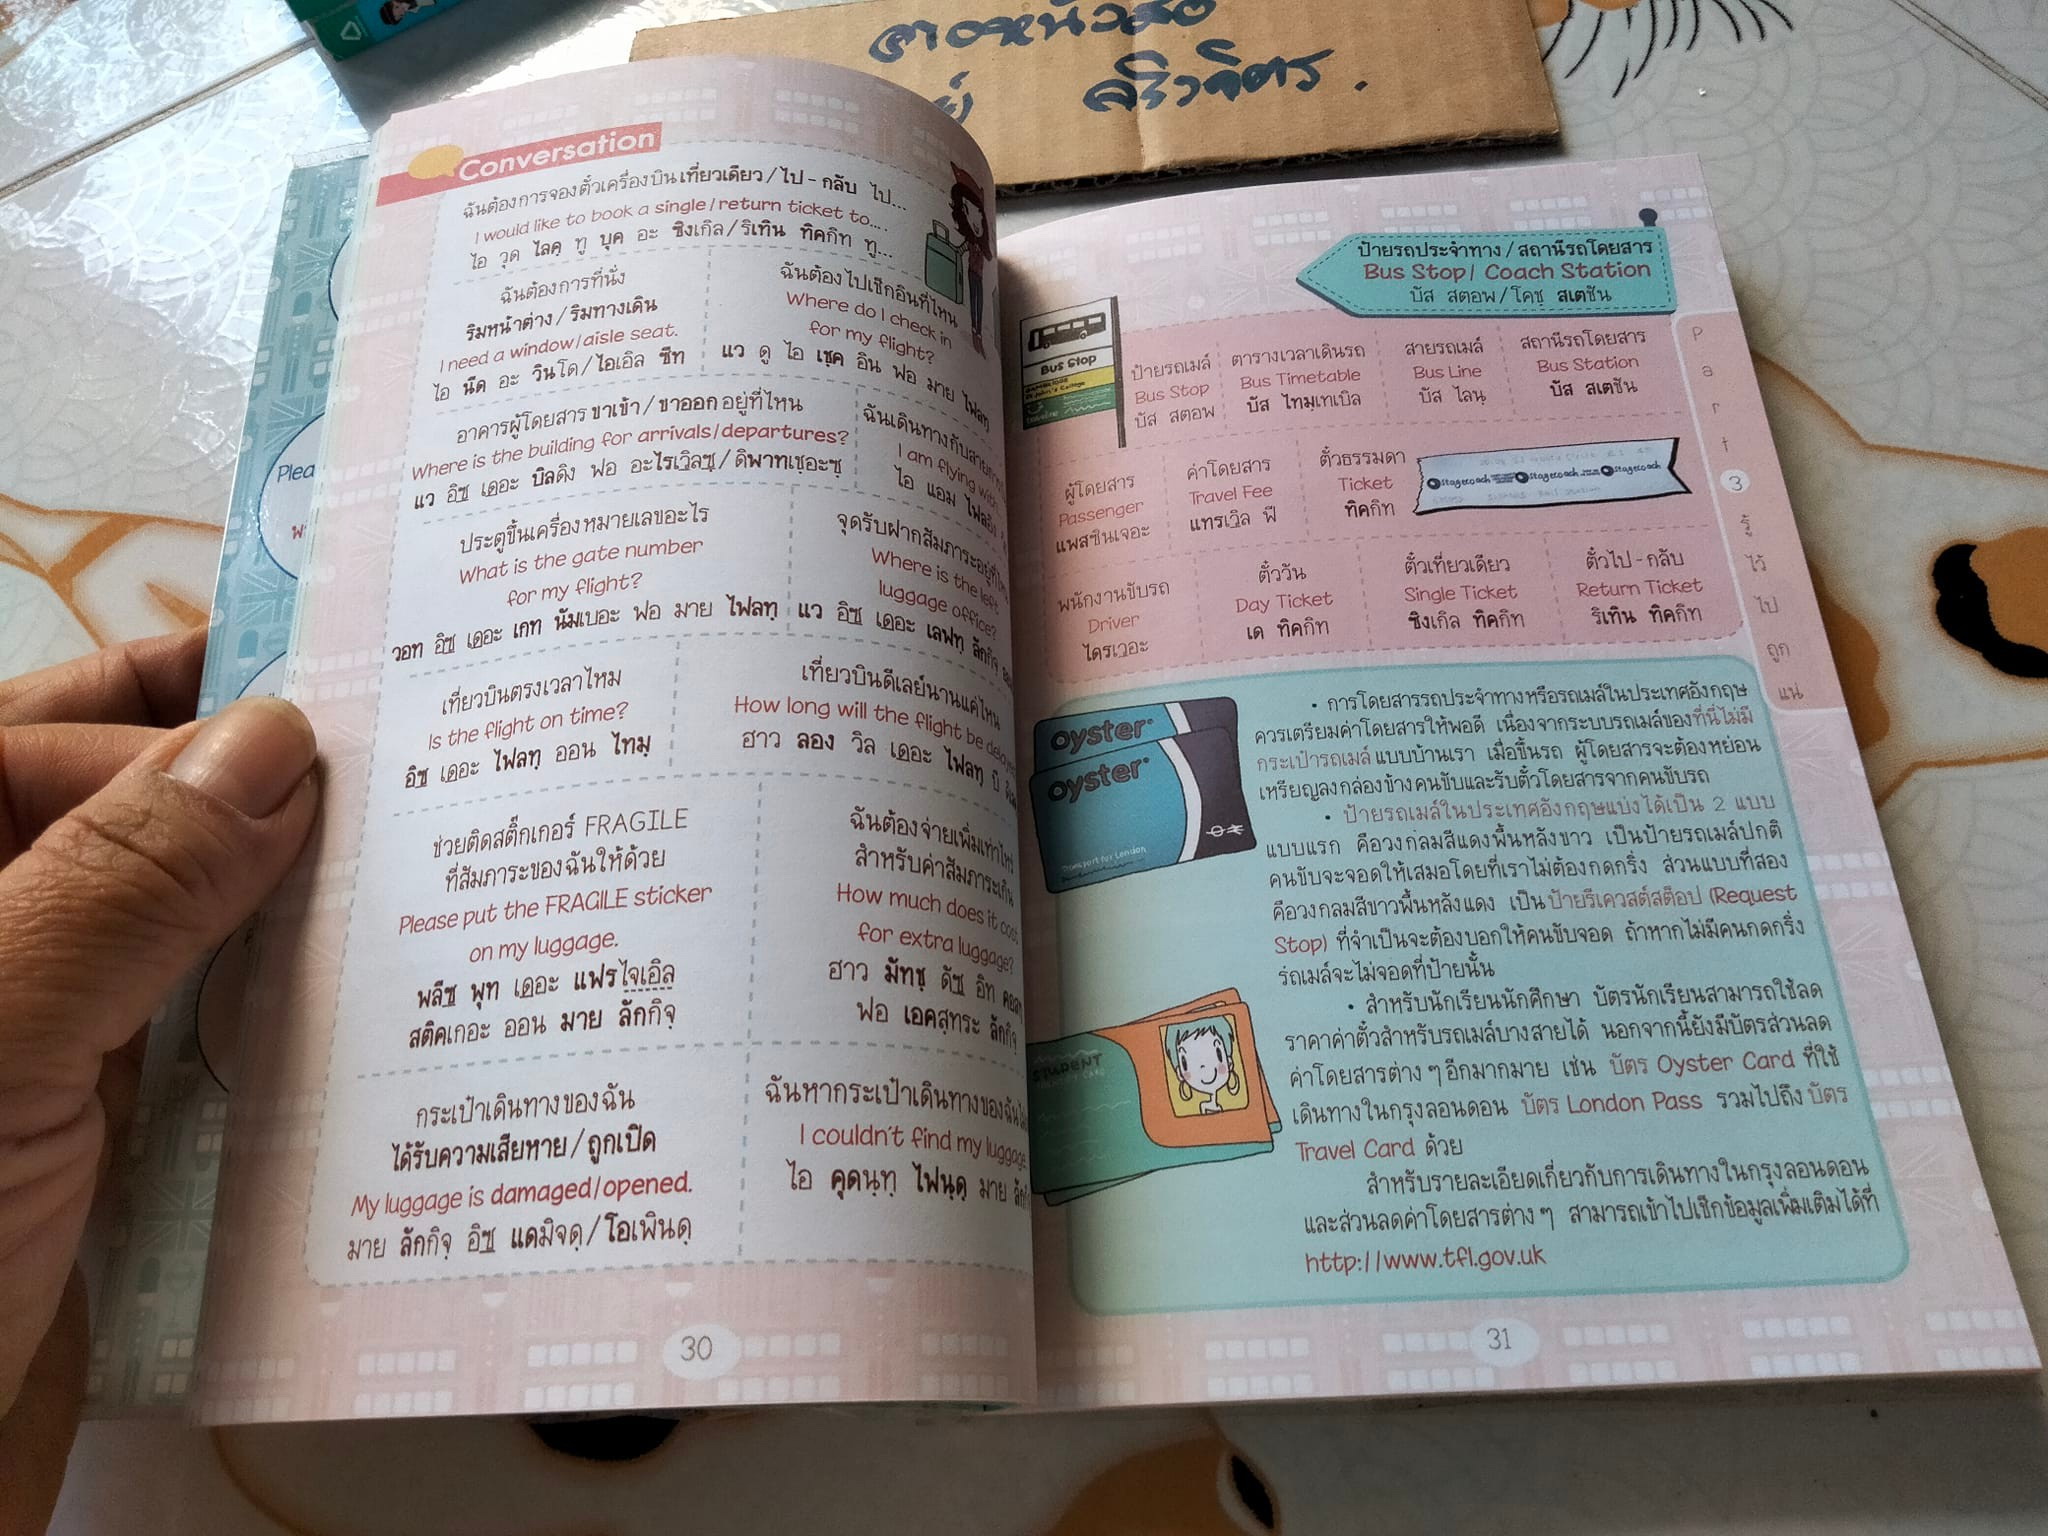 ศิริวจิตร.
Conversation
ฉันต้องการจองตั๋วเครื่องบินเที่ยวเดียว/ไป - กลับ ไป...
I would like to book a single/return ticket to....
ไอ วุด ไลคฺ ทู บุค อะ ซิงเกิล/ริเทิน ทิคกิท ทู...
ฉันต้องการที่นั่ง
ริมหน้าต่าง/ริมทางเดิน
I need a window/aisle seat.
ไอ นีด อะ วินโด/ไอเอิล ซีท
ฉันต้องไปเช็กอินที่ไหน
Where do I check in
for my flight?
แว ดู ไอ เชฺค อิน ฟอ มาย ไฟลทฺ
อาคารผู้โดยสารขาเข้า/ขาออกอยู่ที่ไหน
Where is the building for arrivals/departures?
แว อิซ เดอะ บิลดิง ฟอ อะไรเวิลซฺ/ดิพาทเชอะซฺ
ฉันเดินทางกับสาย
I am flying with...
ไอ แอม
ประตูขึ้นเครื่องหมายเลขอะไร
What is the gate number
for my flight?
วอท อิซ เดอะ เกท นัมเบอะ ฟอ มาย ไฟลทฺ
จุดรับฝากสัมภาระอยู่ที่
Where is the left
luggage office?
แว อิซ เดอะ เลฟทฺ ลักกิจฺ
เที่ยวบินตรงเวลาไหม
Is the flight on time?
อิซ เดอะ ไฟลทฺ ออน ไทมฺ
เที่ยวบินดีเลย์นานแค่ไหน
How long will the flight be delayed
ฮาว ลอง วิล เดอะ ไฟลทฺ บี
ช่วยติดสติ๊กเกอร์ FRAGILE
ที่สัมภาระของฉันให้ด้วย
Please put the FRAGILE sticker
on my luggage.
พลีซ พุท เดอะ แฟรไจเอิล
สติคเกอะ ออน มาย ลักกิจฺ
ฉันต้องจ่ายเพิ่มเท่าไหร่
สำหรับค่าสัมภาระเกิน
How much does it cost
for extra luggage?
ฮาว มัทชฺ ดัซ อิท
ฟอ เอคสฺทระ ลักกิจฺ
กระเป๋าเดินทางของฉัน
ได้รับความเสียหาย/ถูกเปิด
My luggage is damaged/opened.
มาย ลักกิจฺ อิซ แดมิจดฺ/โอเพินดฺ
ฉันหากระเป๋าเดินทางของฉัน
I couldn't find my luggage
ไอ คุดนฺทฺ ไฟนฺดฺ มาย
30
ป้ายรถประจำทาง/สถานีรถโดยสาร
Bus Stop/ Coach Station
บัส สตอพ/โคชฺ สเตชัน
Bus Stop
ป้ายรถเมล์
Bus Stop
บัส สตอพ
ตารางเวลาเดินรถ
Bus Timetable
บัส ไทมฺเทเบิล
สายรถเมล์
Bus Line
บัส ไลนฺ
สถานีรถโดยสาร
Bus Station
บัส สเตชัน
ผู้โดยสาร
Passenger
แพสซินเจอะ
ค่าโดยสาร
Travel Fee
แทรเวิล ฟี
ตั๋วธรรมดา
Ticket
ทิคกิท
Stagecoach Stagecoach Stagecoach
พนักงานขับรถ
Driver
ไดรเวอะ
ตั๋ววัน
Day Ticket
เด ทิคกิท
ตั๋วเที่ยวเดียว
Single Ticket
ซิงเกิล ทิคกิท
ตั๋วไป - กลับ
Return Ticket
ริเทิน ทิคกิท
Part 3 รู้ไว้ไปถูกแน่
Oyster
Oyster
Transport for London
• การโดยสารรถประจำทางหรือรถเมล์ในประเทศอังกฤษ
ควรเตรียมค่าโดยสารให้พอดี เนื่องจากระบบรถเมล์ของที่นี่ไม่มี
กระเป๋ารถเมล์แบบบ้านเรา เมื่อขึ้นรถ ผู้โดยสารจะต้องหย่อน
เหรียญลงกล่องข้างคนขับและรับตั๋วโดยสารจากคนขับรถ
• ป้ายรถเมล์ในประเทศอังกฤษแบ่งได้เป็น 2 แบบ
แบบแรก คือวงกลมสีแดงพื้นหลังขาว เป็นป้ายรถเมล์ปกติ
คนขับจะจอดให้เสมอโดยที่เราไม่ต้องกดกริ่ง ส่วนแบบที่สอง
คือวงกลมสีขาวพื้นหลังแดง เป็นป้ายรีเควสต์สต็อป (Request
Stop) ที่จำเป็นจะต้องบอกให้คนขับจอด ถ้าหากไม่มีคนกดกริ่ง
รถเมล์จะไม่จอดที่ป้ายนั้น
• สำหรับนักเรียนนักศึกษา บัตรนักเรียนสามารถใช้ลด
ราคาค่าตั๋วสำหรับรถเมล์บางสายได้ นอกจากนี้ยังมีบัตรส่วนลด
ค่าโดยสารต่าง ๆ อีกมากมาย เช่น บัตร Oyster Card ที่ใช้
เดินทางในกรุงลอนดอน บัตร London Pass รวมไปถึงบัตร
Travel Card ด้วย
สำหรับรายละเอียดเกี่ยวกับการเดินทางในกรุงลอนดอน
และส่วนลดค่าโดยสารต่าง ๆ สามารถเข้าไปเช็กข้อมูลเพิ่มเติมได้ที่
http://www.tfl.gov.uk
STUDENT
31